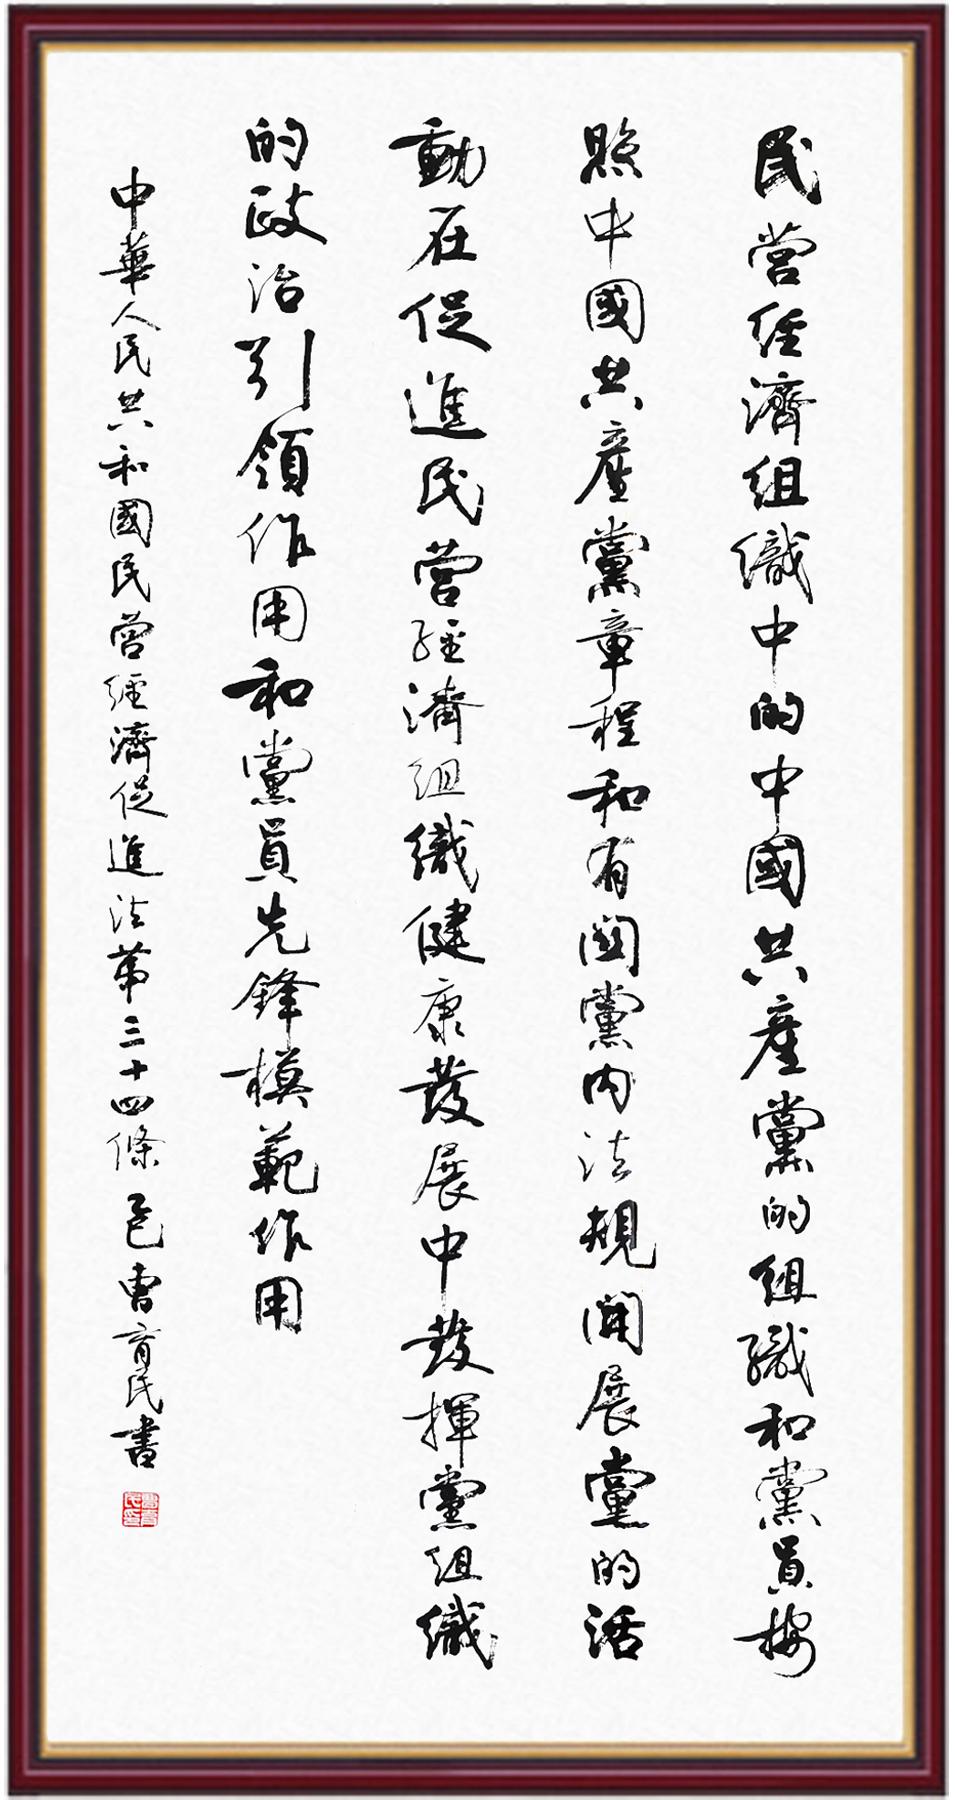 民營經濟組織中的中國共產黨的組織和黨員按
照中國共產黨章程和有關黨內法規開展黨的活
動在促進民營經濟組織健康發展中發揮黨組織
的政治引領作用和黨員先鋒模範作用
中華人民共和國民營經濟促進法第三十四條 乙巳 曹育民書
曹育民印